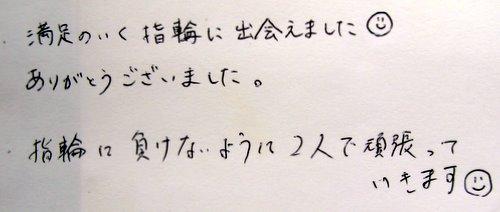 満足のいく指輪に出会えました☺
ありがとうございました。
指輪に負けないように2人で頑張って
いきます☺